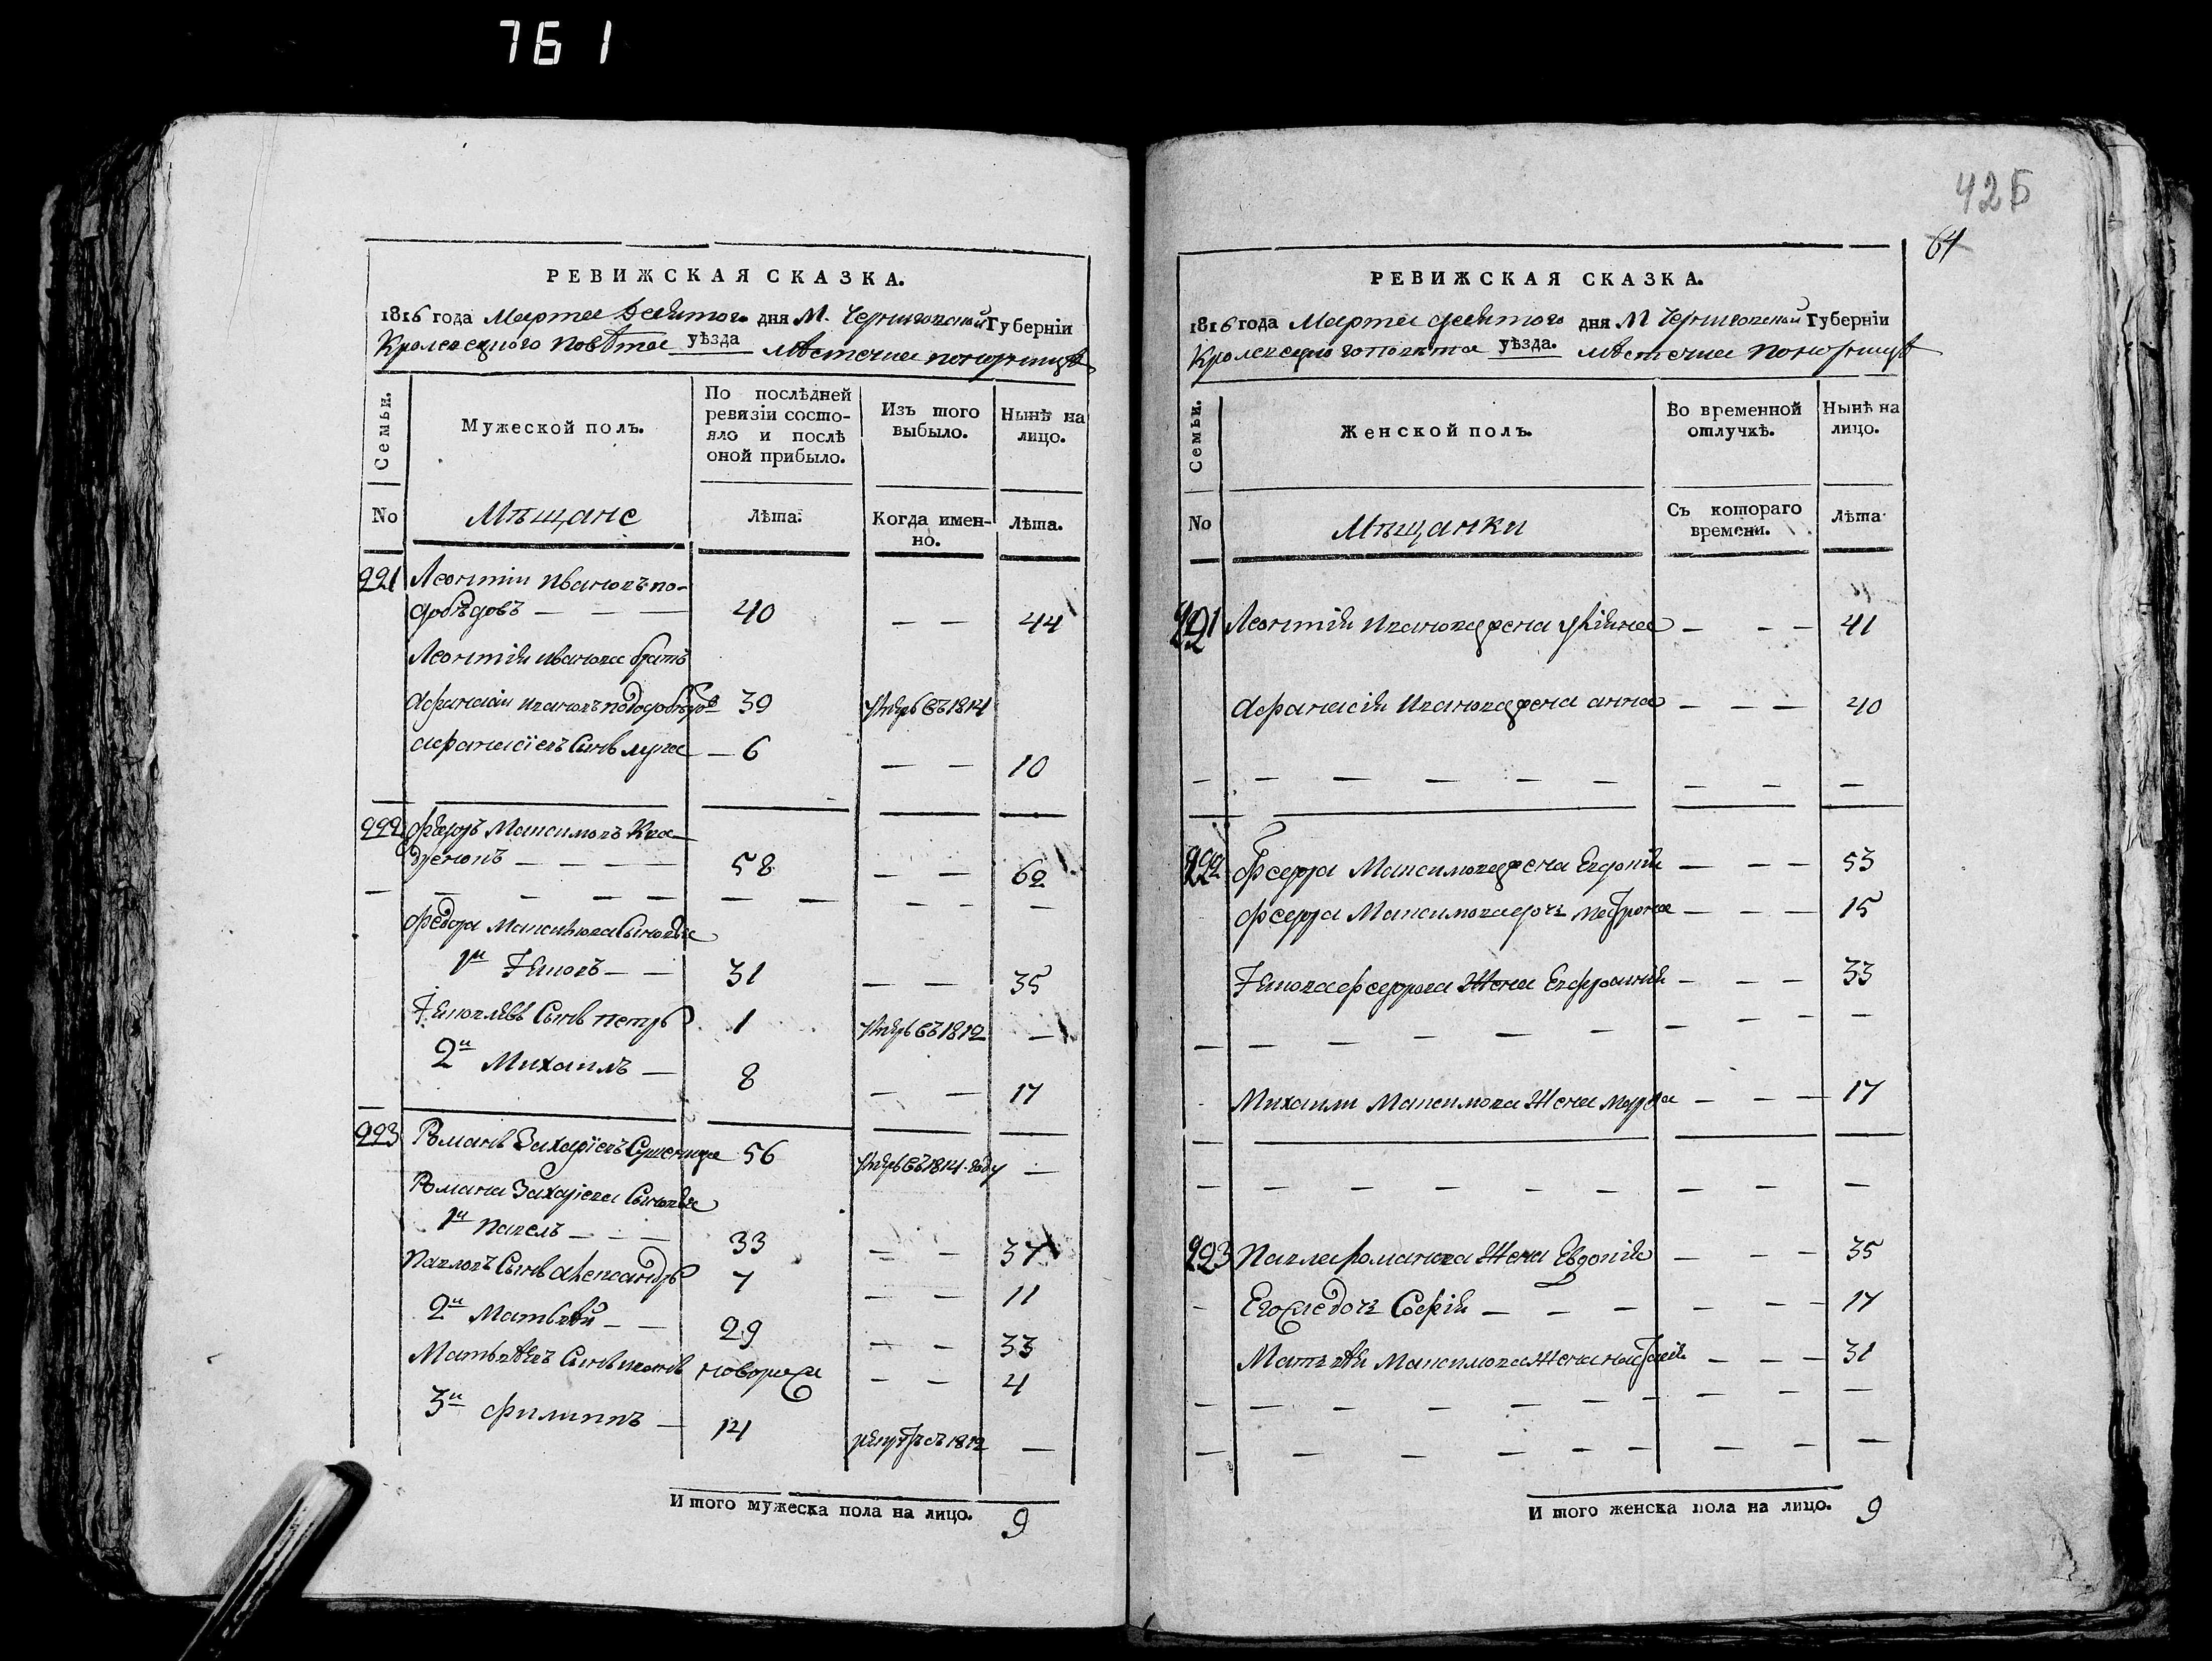 761
РЕВИЖСКАЯ СКАЗКА.
1816 года Марта девятого дня М. Черниговской Губерніи
Кролевецкого Повѣта уѣзда мѣстечка Понорницѣ
Семьи.
Мужеской полъ.
По послѣдней ревизіи состояло и послѣ оной прибыло.
Изъ того выбыло.
Нынѣ на лицо.
No
Мѣщане
Лѣта.
Когда именно.
Лѣта.
221 Леонтій Ивановъ
40 — — 44
Леонтія Иванова братъ
Афанасій Ивановъ 39 умеръ въ 1814
Афанасіевъ Сынъ Лука — 6 — — 10
222 Федоръ Максимовъ
— — — — 58 — — 62
Федора Максимова Сыновья
1й — — 31 — — 35
Сынъ Петръ 1 умеръ въ 1812 —
2й Михаилъ — 8 — — 17
223 Романъ Захаріевъ 56 умеръ въ 1814 году —
Романа Захаріева Сыновья
1й Павелъ — — — 33 — — 37
Павловъ Сынъ Александръ 7 — — 11
2й Матьвѣй — — 29 — — 33
Матьвѣевъ Сынъ новорож — — 4
3й Филиппъ — 14 рекрутъ съ 1812 —
Итого мужеска пола на лицо. 9
425
64
РЕВИЖСКАЯ СКАЗКА.
1816 года Марта девятого дня М Черниговской Губерніи
Кролевецкого повѣта уѣзда. мѣстечка Понорницѣ
Семьи.
Женской полъ.
Во временной отлучкѣ.
Нынѣ на лицо.
No
Мѣщанки
Съ котораго времени.
Лѣта
221 Леонтія Иванова жена — — — 41
Афанасія Иванова жена Анна — — — 40
222 Федора Максимова жена Евдокія — — — 53
Федора Максимова дочь — — — 15
Федорова Жена — — — 33
Михаили Максимова Жена Марфа — — — 17
223 Павла Романова Жена Евдокія — — — 35
Его же дочь Софія — — — — — — 17
Матьвѣя Максимова Жена — — — 31
Итого женска пола на лицо. 9